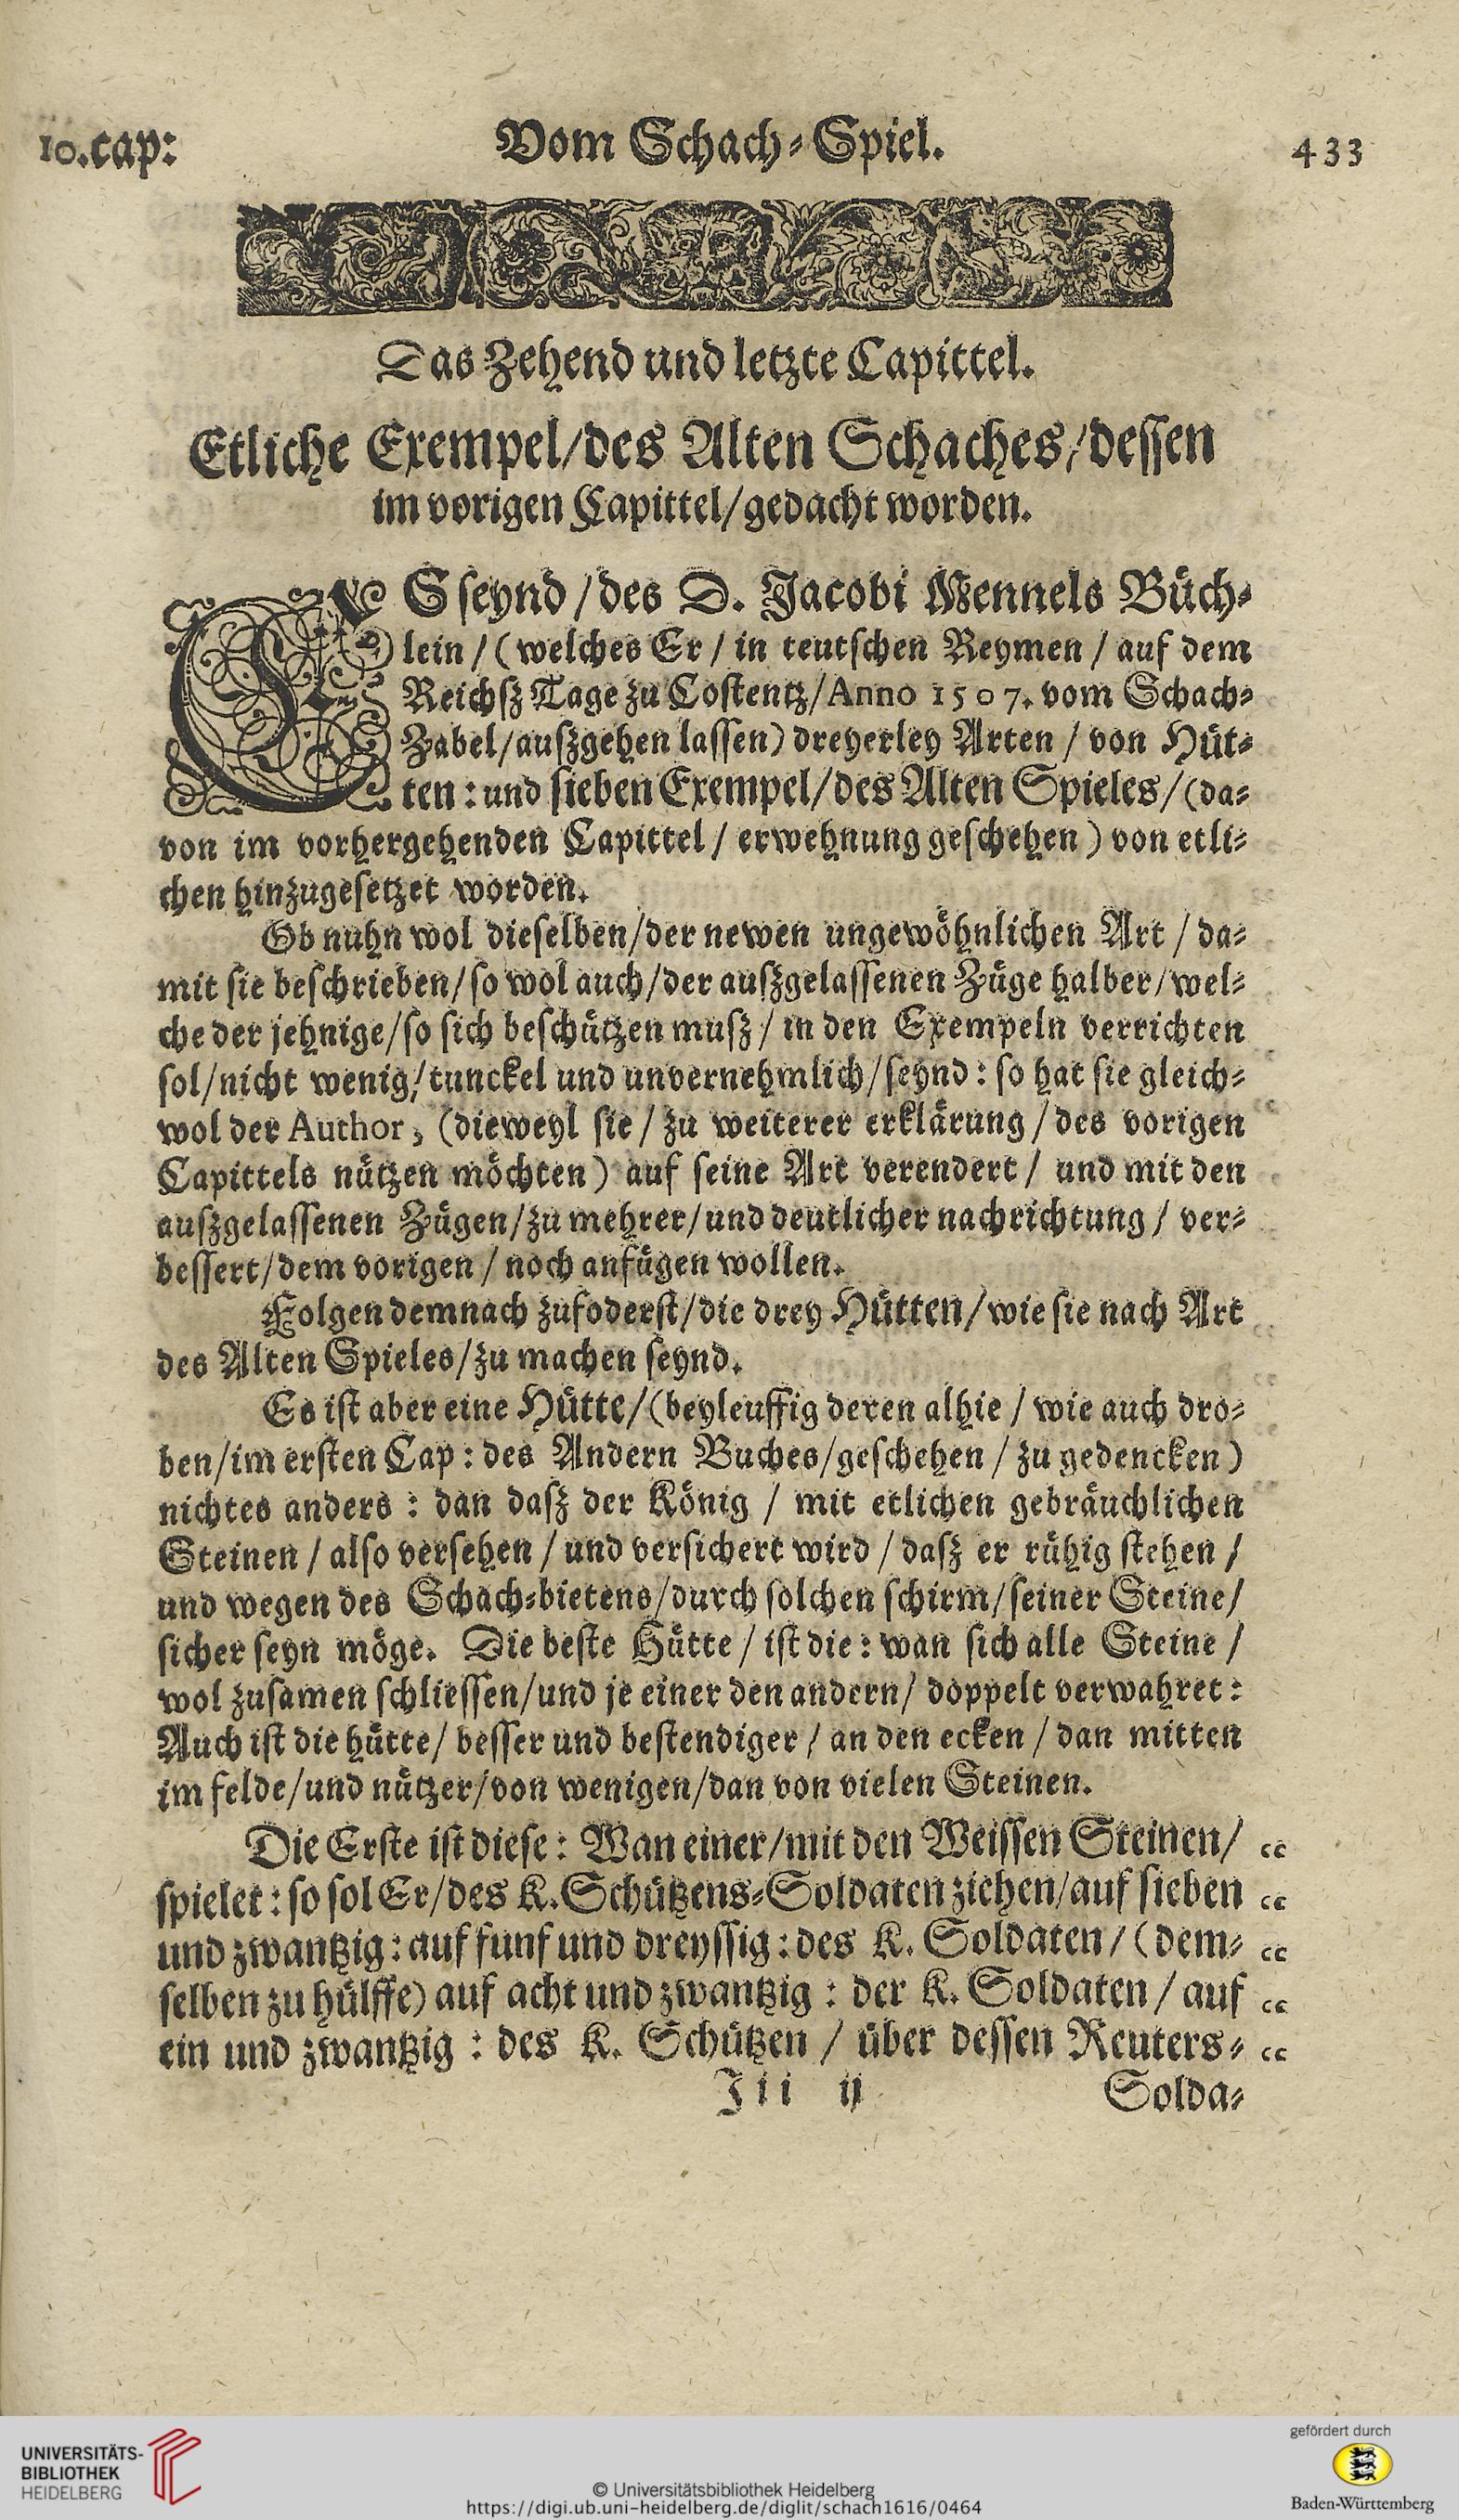 10.cap:
Vom Schach-Spiel.
433
Das Zehend und letzte Capittel.
Etliche Exempel/des Alten Schaches/dessen
im vorigen Capittel/gedacht worden.
ES seynd/des D. Jacobi Mennels Büch-
lein/(welches Er/in teutschen Reymen/auf dem
Reichsz Tage zu Costentz/Anno 1507. vom Schach-
Zabel/auszgehen lassen) dreyerley Arten/von Hüt-
ten: und sieben Exempel/des Alten Spieles/(da-
von im vorhergehenden Capittel/erwehnung geschehen) von etli-
chen hinzugesetzet worden.
Ob nuhn wol dieselben/der newen ungewöhnlichen Art/da-
mit sie beschrieben/so wol auch/der auszgelassenen Züge halber/wel-
che der jehnige/so sich beschützen musz/in den Exempeln verrichten
sol/nicht wenig/tunckel und unvernehmlich/seynd: so hat sie gleich-
wol der Author, (dieweyl sie/zu weiterer erklärung/des vorigen
Capittels nützen möchten) auf seine Art verendert/und mit den
auszgelassenen Zügen/zu mehrer/und deutlicher nachrichtung/ver-
bessert/dem vorigen/noch anfügen wollen.
Folgen demnach zufoderst/die drey Hütten/wie sie nach Art
des Alten Spieles/zu machen seynd.
Es ist aber eine Hütte/(beyleuffig deren alhie/wie auch dro-
ben/im ersten Cap: des Andern Buches/geschehen/zu gedencken)
nichtes anders: dan dasz der König/mit etlichen gebräuchlichen
Steinen/also versehen/und versichert wird/dasz er rühig stehen/
und wegen des Schach-bietens/durch solchen schirm/seiner Steine/
sicher seyn möge. Die beste Hütte/ist die: wan sich alle Steine/
wol zusamen schliessen/und je einer den andern/doppelt verwahret:
Auch ist die hütte/besser und bestendiger/an den ecken/dan mitten
im felde/und nützer/von wenigen/dan von vielen Steinen.
Die Erste ist diese: Wan einer/mit den Weissen Steinen/ “
spielet: so sol Er/des K. Schützens-Soldaten ziehen/auf sieben “
und zwantzig: auf funf und dreyssig: des K. Soldaten/(dem- “
selben zu hülffe) auf acht und zwantzig: der K. Soldaten/auf “
ein und zwantzig: des K. Schützen/über dessen Reuters- “
Iii ij
Solda-
UNIVERSITÄTS-
BIBLIOTHEK
HEIDELBERG
© Universitätsbibliothek Heidelberg
https://digi.ub.uni-heidelberg.de/diglit/schach1616/0464
gefördert durch
Baden-Württemberg